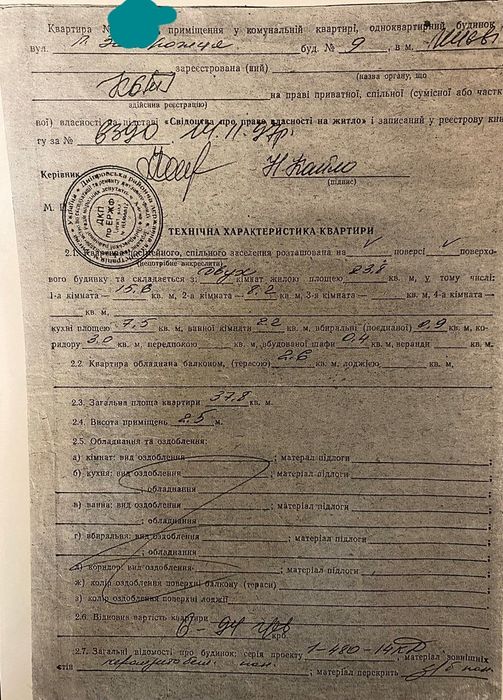 Квартира № приміщення у комунальній квартирі, одноквартирний будинок
вул. буд. № 9, в м.
зареєстрована (ний)
(назва органу, що
КБТІ на праві приватної, спільної (сумісної або частк
здійснив реєстрацію)
вої) власності на підставі «Свідоцтва про право власності на житло» і записаний у реєстрову кни
гу за № 6390 14.11.97р.
Керівник
(підпис)
М.
ДКП
по ЕРЖФ
ТЕХНІЧНА ХАРАКТЕРИСТИКА КВАРТИРИ
2.1. Квартира спільного заселення розташована на V поверсі V поверхо-
(непотрібне викреслити)
вого будинку та складається з двух кімнат жилою площею 23,8 кв. м, у тому числі:
1-а кімната — 15,6 кв. м, 2-а кімната — 8,2 кв. м, 3-я кімната — кв. м, 4-а кімната —
кв. м,
кухні площею 7,5 кв. м, ванної кімнати 2,2 кв. м, вбиральні (поєднаної) 0,9 кв. м, ко-
ридору 3,0 кв. м, передпокою кв. м, вбудованої шафи 0,4 кв. м, веранди кв. м.
2.2. Квартира обладнана балконом, (терасою) 2,6 кв. м, лоджією кв. м,
2.3. Загальна площа квартири 37,8 кв. м.
2.4. Висота приміщень 2,5 м.
2.5. Обладнання та оздоблення:
а) кімнат: вид оздоблення ; матеріал підлоги
б) кухня: вид оздоблення ; матеріал підлоги
; обладнання
в) ванна: вид оздоблення ; матеріал підлоги
; обладнання
г) вбиральня: вид оздоблення ; матеріал підлоги
; обладнання
д) коридор: вид оздоблення ; матеріал підлоги
ж) колір оздоблення поверхні балкону (тераси)
з) колір оздоблення поверхні лоджії
2.6. Відновна вартість квартири 6-94 грв
крб.
2.7. Загальні відомості про будинок: серія проекту 1-480-14 матеріал зовнішніх
стін пан. матеріал перекрить з/б пан.